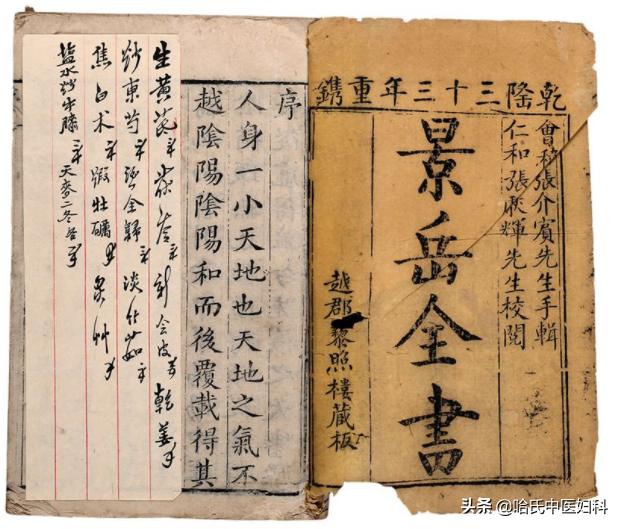 乾隆三十三年重鐫
會稽張介賓先生手輯
仁和張輝先生校閱
景岳全書
越郡黎照樓藏板
序
人身一小天地也天地之氣不
越陰陽陰陽和而後覆載得其
生黃芪 會皮 乾姜
炒東芍 全歸 淡竹茹
焦白术 煅牡礪
盐水炒牛膝 天麥二冬各
头条 @哈氏中医妇科